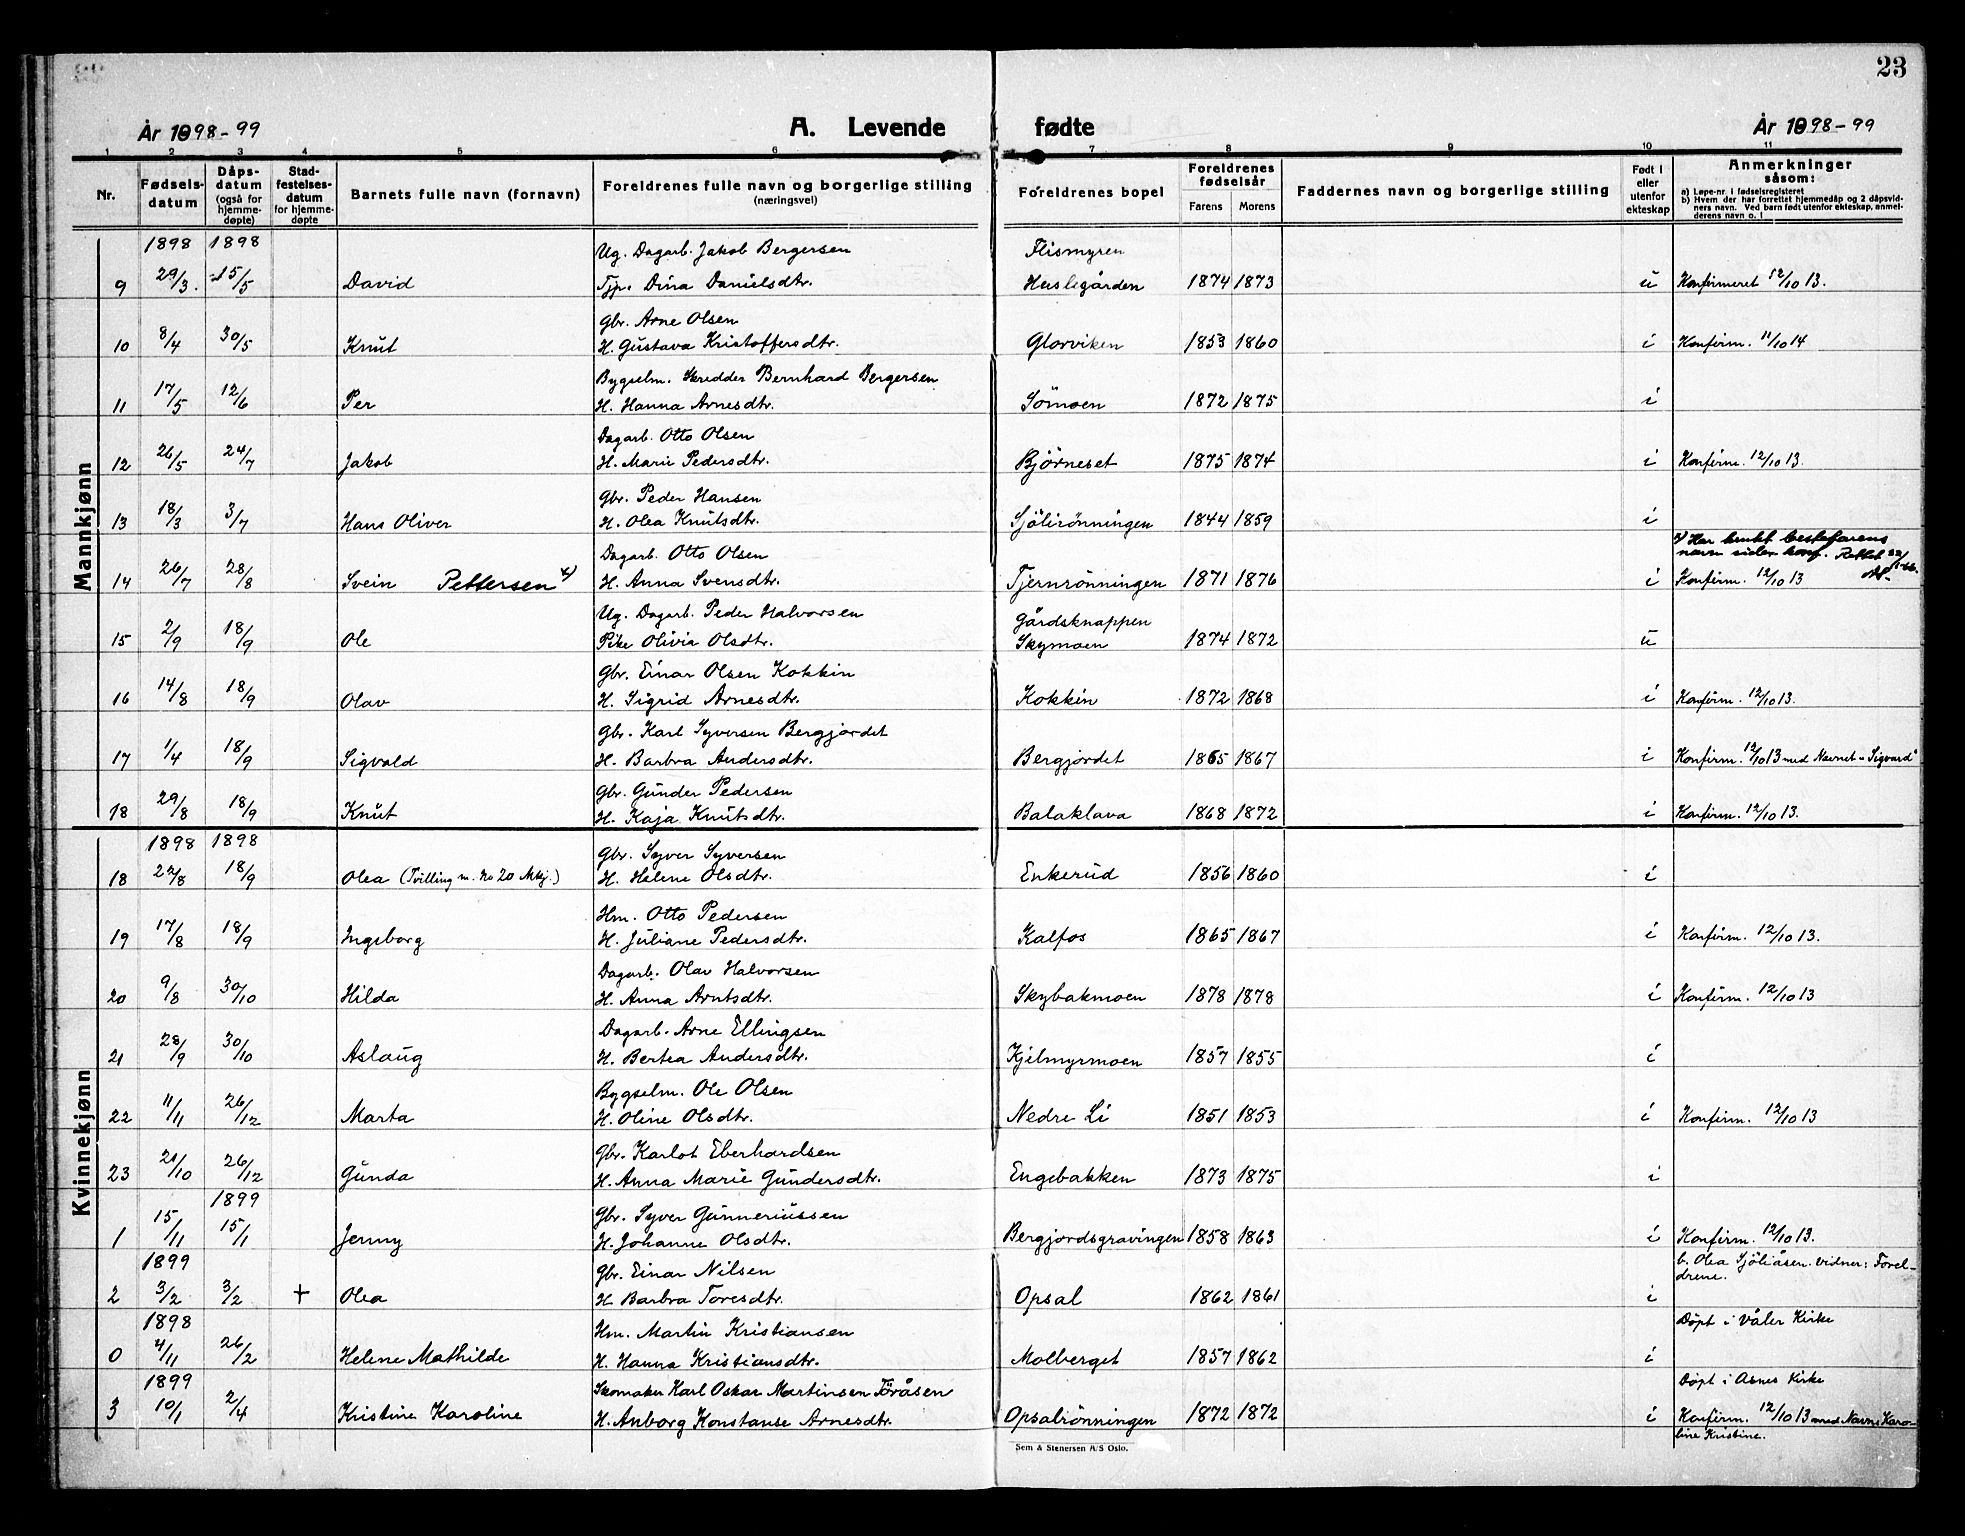 23
År 1898-99 A. Levende fødte År 1898-99
1 2 3 4 5 6 7 8 9 10 11
Nr. Fødselsdatum Dåpsdatum (også for hjemmedøpte) Stadfestelsesdatum for hjemmedøpte Barnets fulle navn (fornavn) Foreldrenes fulle navn og borgerlige stilling (næringsvei) Foreldrenes bopel Foreldrenes fødselsår Farens Morens Faddernes navn og borgerlige stilling Født i eller utenfor ekteskap Anmerkninger såsom:
a) Løpe-nr. i fødselsregisteret
b) Hvem der har forrettet hjemmedåp og 2 dåpsvidners navn. Ved barn født utenfor ekteskap, anmelderens navn o. l
Mannkjønn
1898 1898 Ug. Dagarb. Jakob Bergersen Flismyren
9 29/3. 15/5 David Tjp. Dina Danielsdtr. Huslegården 1874 1873 u Konfirmeret 12/10 13.
Gbr. Arne Olsen
10 8/4 30/5 Knut H. Gustava Kristoffersdtr. Glorviken 1853 1860 i Konfirm. 11/10 14
Bygselm. Skredder Bernhard Bergersen
11 17/5 12/6 Per H. Hanna Arnesdtr. Sömoen 1872 1875 i
Dagarb. Otto Olsen
12 26/5 24/7 Jakob H. Marie Pedersdtr. Björneset 1875 1874 i Konfirm. 12/10 13.
Gbr. Peder Hansen
13 18/3 3/7 Hans Oliver H. Olea Knutsdtr. Sjölirönningen 1844 1859 i
x) Har brukt bestefarens
Dagarb. Otto Olsen navn siden konf. Rettet
14 26/7 28/8 Svein Pettersen x) H. Anna Svensdtr. Tjernrönningen 1871 1876 i Konfirm. 12/10 13
Ug. Dagarb. Peder Halvorsen Gårdsknappen
15 2/9 18/9 Ole Pike Olivia Olsdtr. Skymoen 1874 1872 u
Gbr. Einar Olsen Kokkin
16 14/8 18/9 Olav H. Sigrid Arnesdtr. Kokkin 1872 1868 i Konfirm. 12/10 13.
Gbr. Karl Syversen Bergjordet
17 1/4 18/9 Sigvald H. Barbra Andersdtr. Bergjordet 1865 1867 i Konfirm. 12/10 13 med Navnet „Sigvard"
Gbr. Gunder Pedersen
18 29/8 18/9 Knut H. Kaja Knutsdtr. Balaklava 1868 1872 i Konfirm. 12/10 13.
Kvinnekjønn
1898 1898 Gbr. Syver Syversen
18 22/8 18/9 Olea (Tvilling m. No 20 Mkj.) H. Helene Olsdtr. Enkerud 1856 1860 i
Hm. Otto Pedersen
19 17/8 18/9 Ingeborg H. Juliane Pedersdtr. Kalfos 1865 1867 i Konfirm. 12/10 13.
Dagarb. Olav Halvorsen
20 9/8 30/10 Hilda H. Anna Arntsdtr. Skybakmoen 1878 1878 i Konfirm. 12/10 13
Dagarb. Arne Ellingsen
21 28/9 30/10 Aslaug H. Bertea Andersdtr. Kjelmyrmoen 1857 1855 i
Bygselm. Ole Olsen
22 11/11 26/12 Marta H. Oline Olsdtr. Nedre Li 1851 1853 i Konfirm. 12/10 13
Gbr. Karlot Eberhardsen
23 21/10 26/12 Gunda H. Anna Marie Gundersdtr. Engebakken 1873 1875 i
1899 Gbr. Syver Gunneriussen
1 15/11 15/1 Jenny H. Johanne Olsdtr. Bergjordsgravingen 1858 1863 i Konfirm. 12/10 13.
1899 Gbr. Einar Nilsen b. Olea Sjöliåsen. Vidner: Foreldrene.
2 3/2 3/2 + Olea H Barbra Toresdtr. Opsal 1862 1861 i
1898 Hm. Martin Kristiansen Döpt i Våler Kirke
0 4/11 26/2 Helene Mathilde H. Hanna Kristiansdtr. Molberget 1857 1862 i
1899 Skomaker Karl Oskar Martinsen Töråsen Döpt i Åsnes Kirke
3 10/1 2/4 Kristine Karoline H. Anborg Konstanse Arnesdtr. Opsalrönningen 1872 1872 i Konfirm. 12/10 13 med Navne Karoline Kristine.
Sem & Stenersen A/S Oslo.